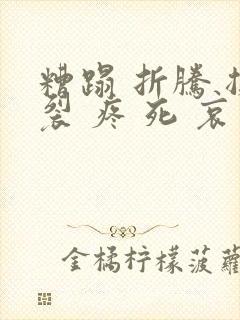 糟蹋 折騰
裂 疼 死 哀
金橘柠檬菠蘿